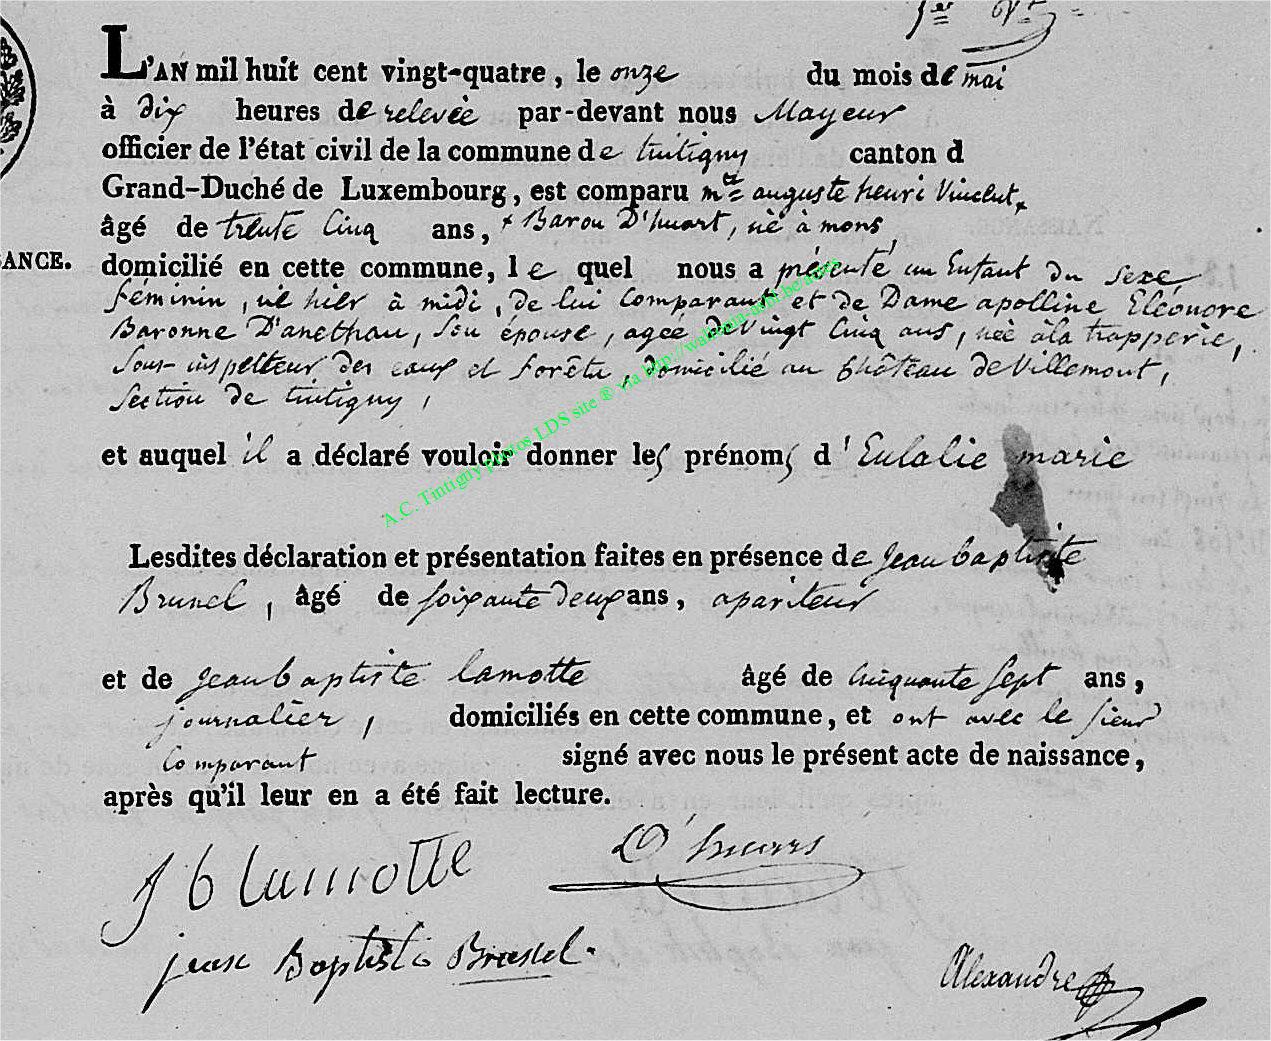 L'AN mil huit cent vingt-quatre, le onze du mois de mai
à dix heures de relevée par-devant nous Mayeur
officier de l'état civil de la commune de tintigny canton d
Grand-Duché de Luxembourg, est comparu mr auguste henri Vincent
âgé de trente Cinq ans, + Baron D'huart, né à mons,
ANCE. domicilié en cette commune, le quel nous a présenté un Enfant du sexe
féminin, né hier à midi, de lui Comparant et de Dame apolline Eléonore
Baronne D'anethan, son épouse, agée de Vingt Cinq ans, née à la trapperie,
Sous-inspecteur des eaux et forêts, domicilié au Château de Villemont,
Section de tintigny,
et auquel il a déclaré vouloir donner les prénoms d'Eulalie marie
Lesdites déclaration et présentation faites en présence de Jean baptiste
Brunel, âgé de soixante Deux ans, apariteur
et de Jean baptiste lamotte âgé de Cinquante Sept ans,
journalier, domiciliés en cette commune, et ont avec le sieur
Comparant signé avec nous le présent acte de naissance,
après qu'il leur en a été fait lecture.
J b lamotte D'huart
jean Baptiste Brunel.
Alexandre
A.C. Tintigny photos LDS site ® via http://wallonia-asbl.be/actes